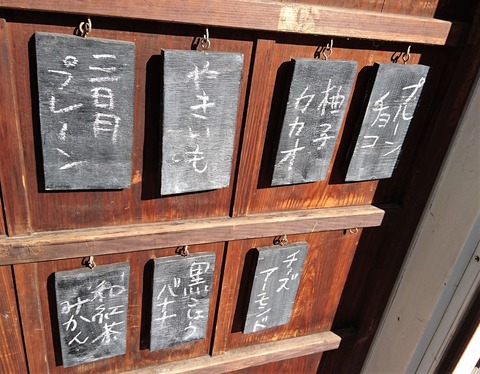 プルーン
チョコ
柚子
カカオ
やきいも
三日月
プレーン
チーズ
アーモンド
黒こしょう
バナナ
和紅茶
みかん